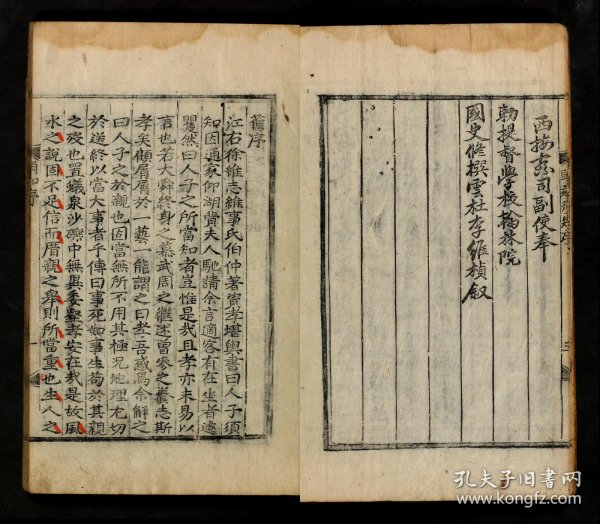 西按察司副使奉
勅提督學校翰林院
國史修撰雲杜李維楨叙
舊序
江右徐維志維事氏伯仲著資孝堪輿書曰人子須
知因通家仰湖費夫人馳請余言適客有在坐者遽
矍然曰人子之所當知者豈惟是我且孝亦未易以
言也若大舜終身之慕武周之繼述曾參之養志斯
孝矣顧屑屑於一藝一能謂之曰孝吾惑焉余解之
曰人子之於親也固當無所不用其極況地理尤切
於送終以當大事者乎傳曰事死如事生苟於其親
之歿也置蟻泉沙礫中無異委壑孝安在哉是故風
水之說固不足信而厝親之舉則所當重也生人之
孔夫子旧书网
www.kongfz.com